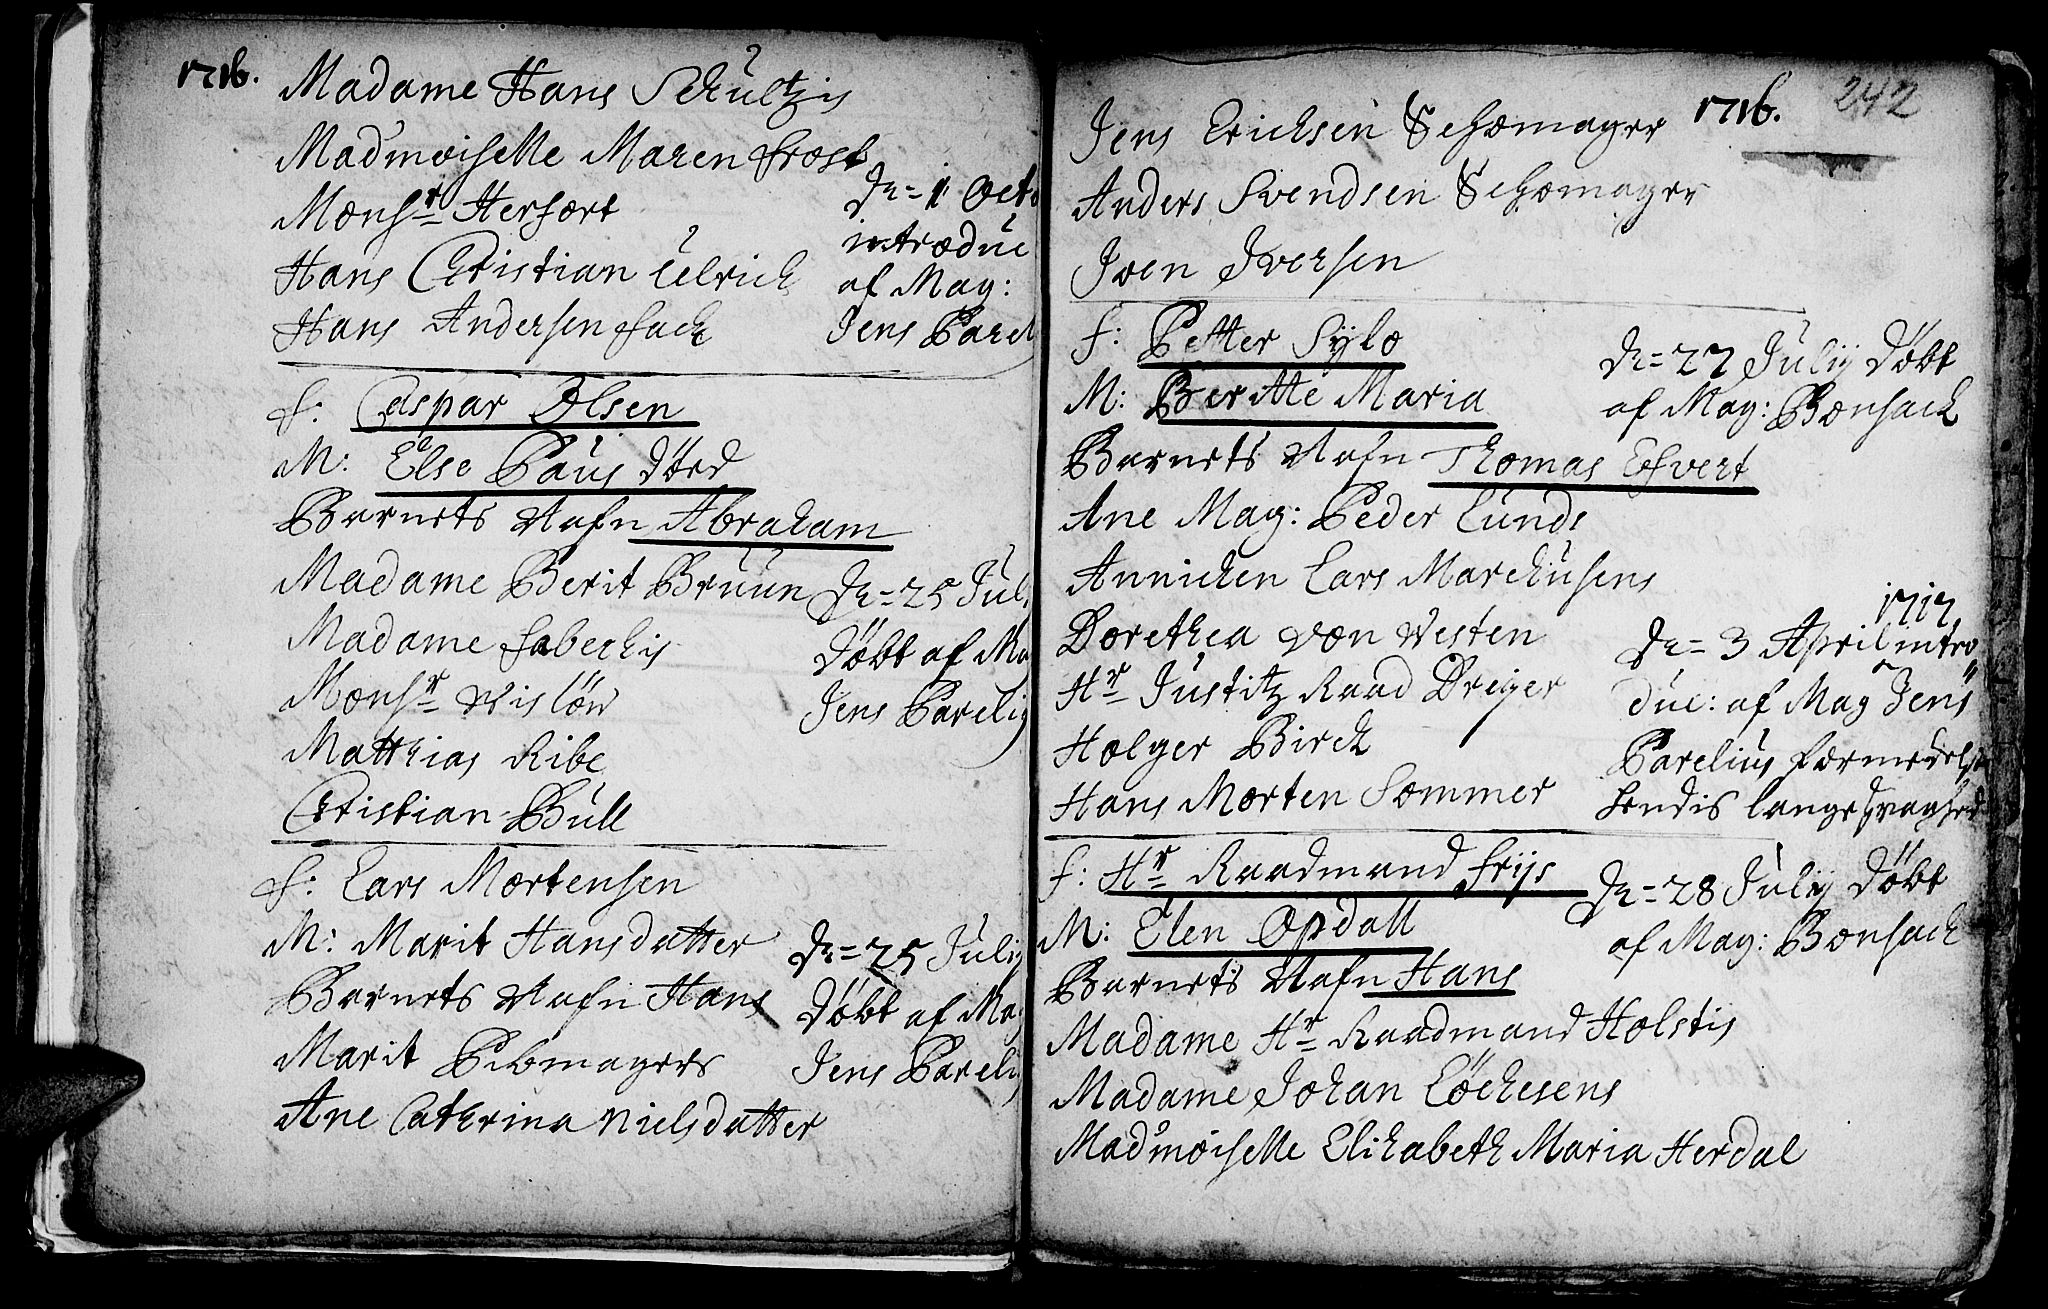 1716.
Madame Hans Schultzis
Madmoiselle Maren Frost
Monsr Herfort
Hans Christian Ulrich
Hans Andersen Fack
Dn= 1 Octo
introduc
af Mag:
Jens Pareli
F: Caspar Olsen
M: Else Paus dörd
Barnets Nafn Abraham
Madame Berit Bruun
Madame Faberkis
Monsr Vislöw
Matthias Ribe
Christian Bull
Dn= 25 Juli
döbt af Ma
Jens Pareliu
F: Lars Mortensen
M: Marit Hansdatter
Barnets Nafn Hans
Marit Pibmagers
Ane Cathrina Nielsdatter
Dn= 25 Julij
döbt af Mag
Jens Pareli
1716. 242
Jens Ericksen Schomager
Anders Svendsen Schomager
Iven Iversen
F: Petter Sylo
M: Beritte Maria
Barnets Nafn Thomas Efvert
Ane Mag: Peder Lunds
Annichen Lars Marchusens
Dorethea von Westen
Hr Justitz Raad Dreyer
Holger Birch
Hans Morten Sommer
Dn= 27 Julij döbt
af Mag: Bonsach
1717
Dn= 3 April intro
duc: af Mag Jens
Parelius formedelst
hendis lange svaghed
F: Hr Raadmand Friis
M: Elen Opdall
Barnets Nafn Hans
Madame Hr Raadmand Holstis
Madame Johan Löchesens
Madmoiselle Elisabeth Maria Herdal
Dn= 28 Julij döbt
af Mag: Bonsach